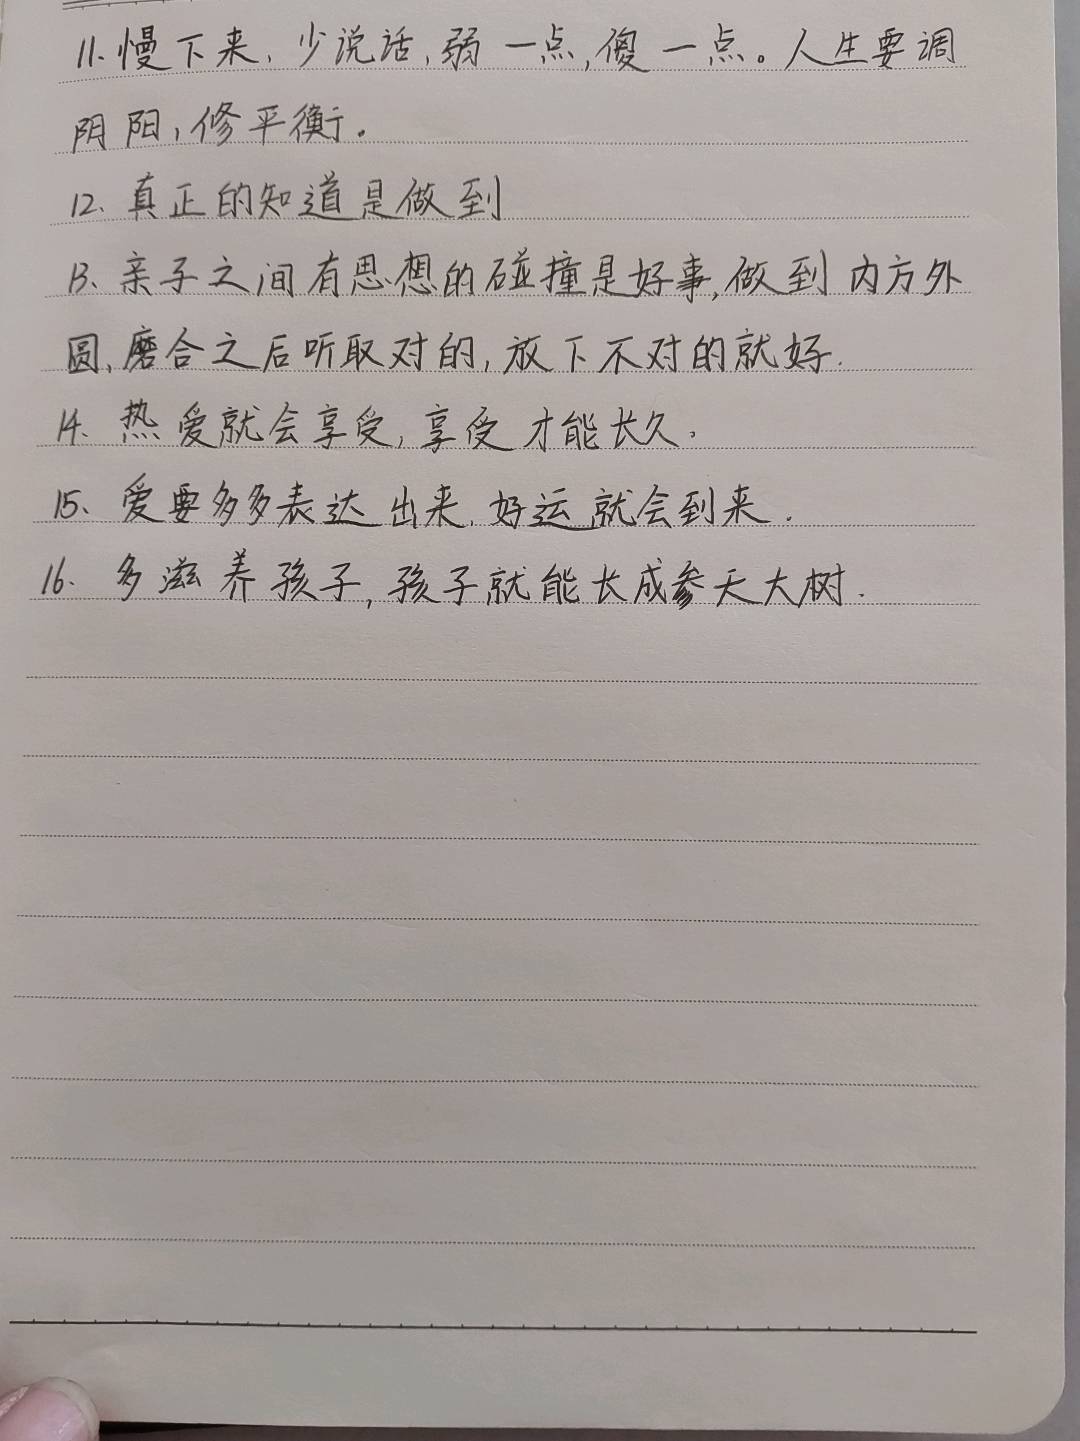 11. 慢下来, 少说话, 弱一点, 傻一点。人生要调
阴阳, 修平衡.
12. 真正的知道是做到
13. 亲子之间有思想的碰撞是好事, 做到内方外
圆, 磨合之后听取对的, 放下不对的就好.
14. 热爱就会享受, 享受才能长久.
15. 爱要多多表达出来. 好运就会到来.
16. 多滋养孩子, 孩子就能长成参天大树.